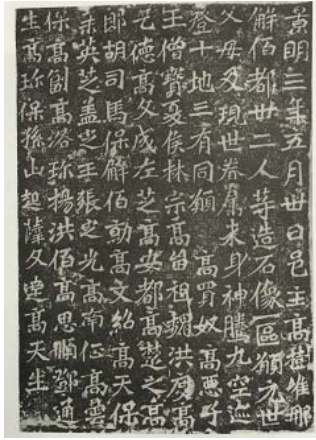 景明三年五月卅日邑主高樹維那
解佰都卅二人等造石像一區願元世
父母及現世眷屬来身神騰九空迹
登十地三有同願 高買奴高惡子
王僧寶夏侯林宗高留祖魏洪度高
乞德高文成左芝高安都高楚之高
郎胡司馬保解佰勍高文紹高天保
英芝盖定王張定光高南征高曇
保高副高洛珎楊洪佰高思順鄧通
生高珎保孫山起薩文達高天生